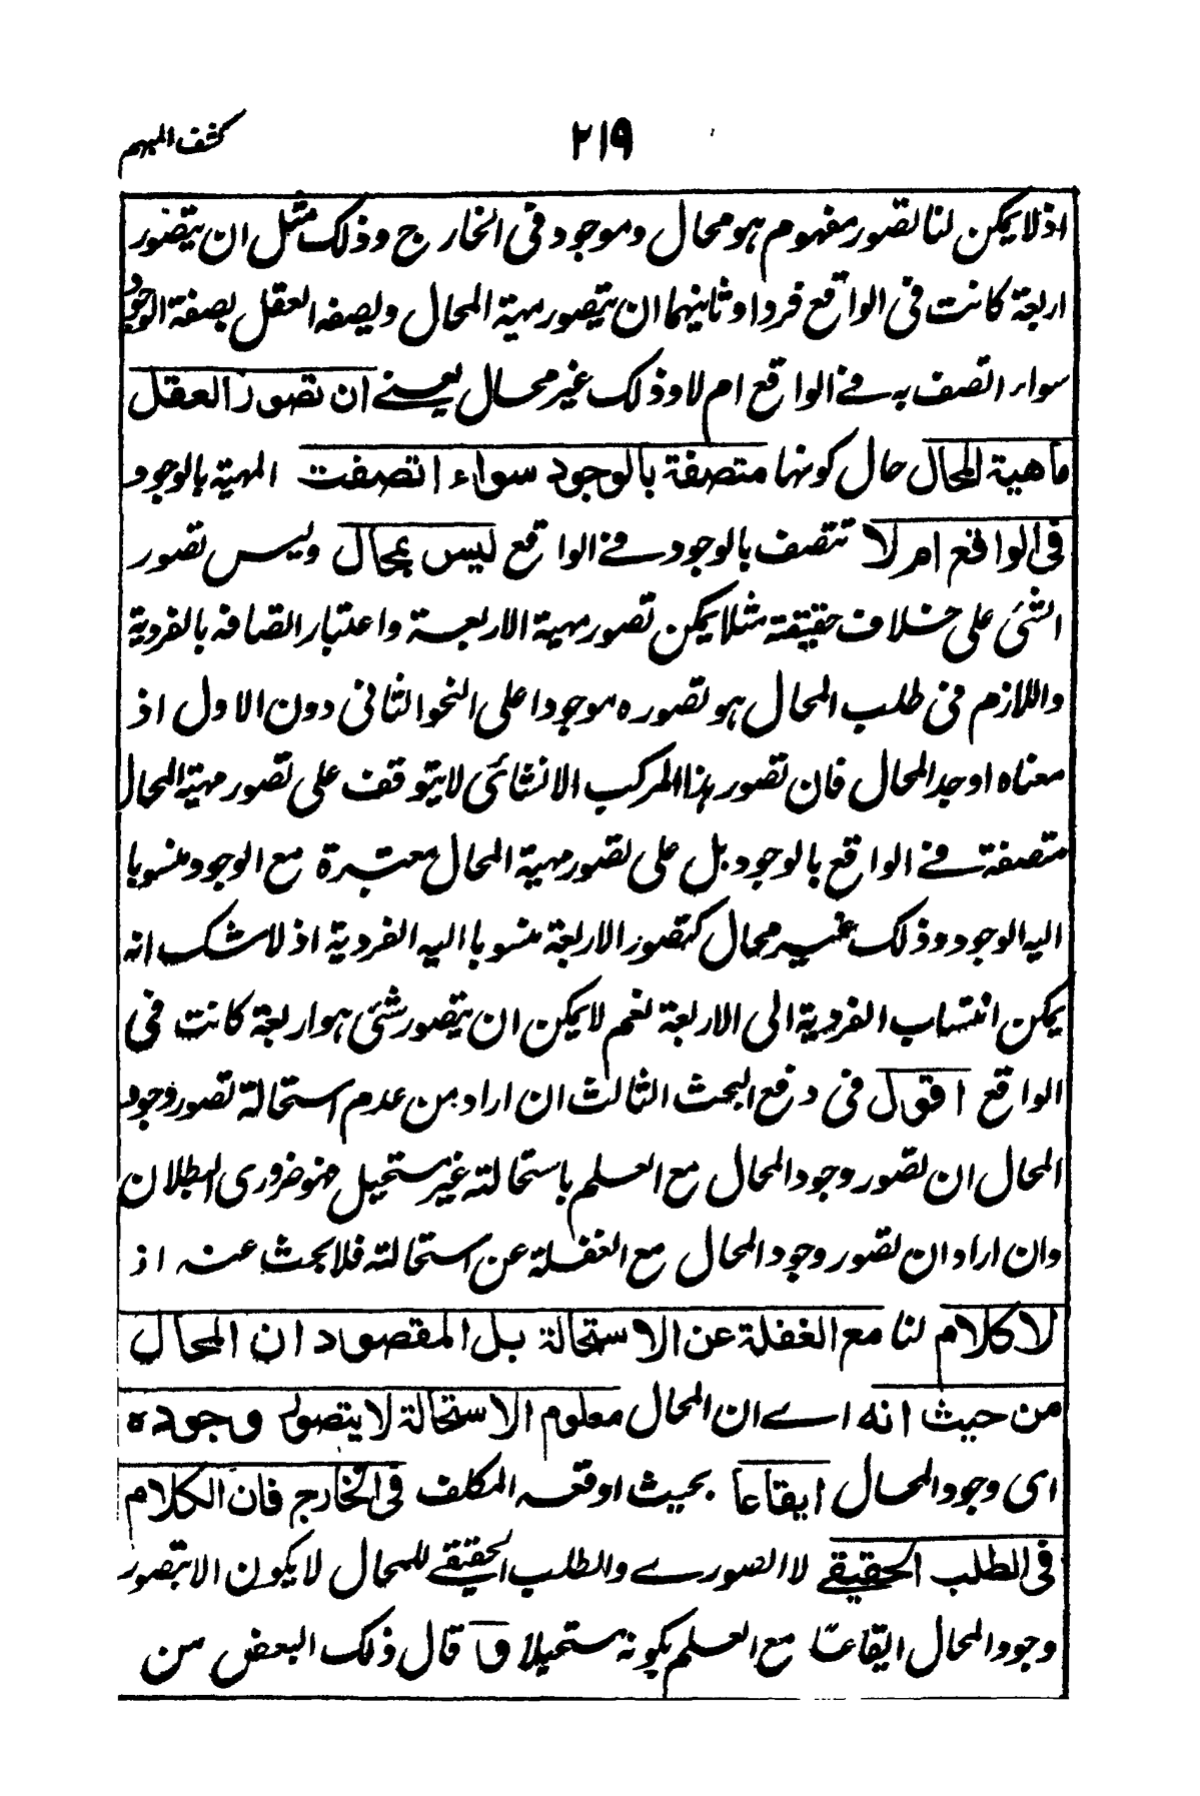 كشف المبهم
٢١٩
اذ لا يمكن لنا تصور مفهوم هو محال وموجود فى الخارج وذلك مثل ان يتصور
اربعة كانت فى الواقع فردا وثانيهما ان يتصور مهية المحال ويصفه العقل بصفة الوجود
سواء اتصف به فى الواقع ام لا وذلك غير محال يعنى ان تصور العقل
ماهية المحال حال كونها متصفة بالوجود سواء اتصفت المهية بالوجود
فى الواقع ام لا تتصف بالوجود فى الواقع ليس بمحال وليس تصور
الشئ على خلاف حقيقته مثلا يمكن تصور مهية الاربعة واعتبار اتصافه بالفردية
واللازم فى طلب المحال هو تصوره موجودا على النحو الثانى دون الاول اذ
معناه اوجد المحال فان تصور هذا المركب الانشائى لا يتوقف على تصور مهية المحال
متصفة فى الواقع بالوجود بل على تصور مهية المحال معتبرة مع الوجود منسوبا
اليه الوجود وذلك غير محال كتصور الاربعة منسوبا اليه الفردية اذ لا شك انه
يمكن انتساب الفردية الى الاربعة نعم لا يمكن ان يتصور شئ هو اربعة كانت فى
الواقع اقول فى دفع البحث الثالث ان اراد من عدم استحالة تصور وجود
المحال ان تصور وجود المحال مع العلم باستحالته غير مستحيل فهو ضرورى البطلان
وان اراد ان تصور وجود المحال مع الغفلة عن استحالته فلا بحث عنه اذ
لا كلام لنا مع الغفلة عن الاستحالة بل المقصود ان المحال
من حيث انه اے ان المحال معلوم الاستحالة لا يتصور وجوده
اى وجود المحال ايقاعا بحيث اوقعه المكلف فى الخارج فان الكلام
فى الطلب الحقيقے لا الصورے والطلب الحقيقے للمحال لا يكون الا بتصور
وجود المحال ايقاعا مع العلم بكونه مستحيلا ق قال ذلك البعض من